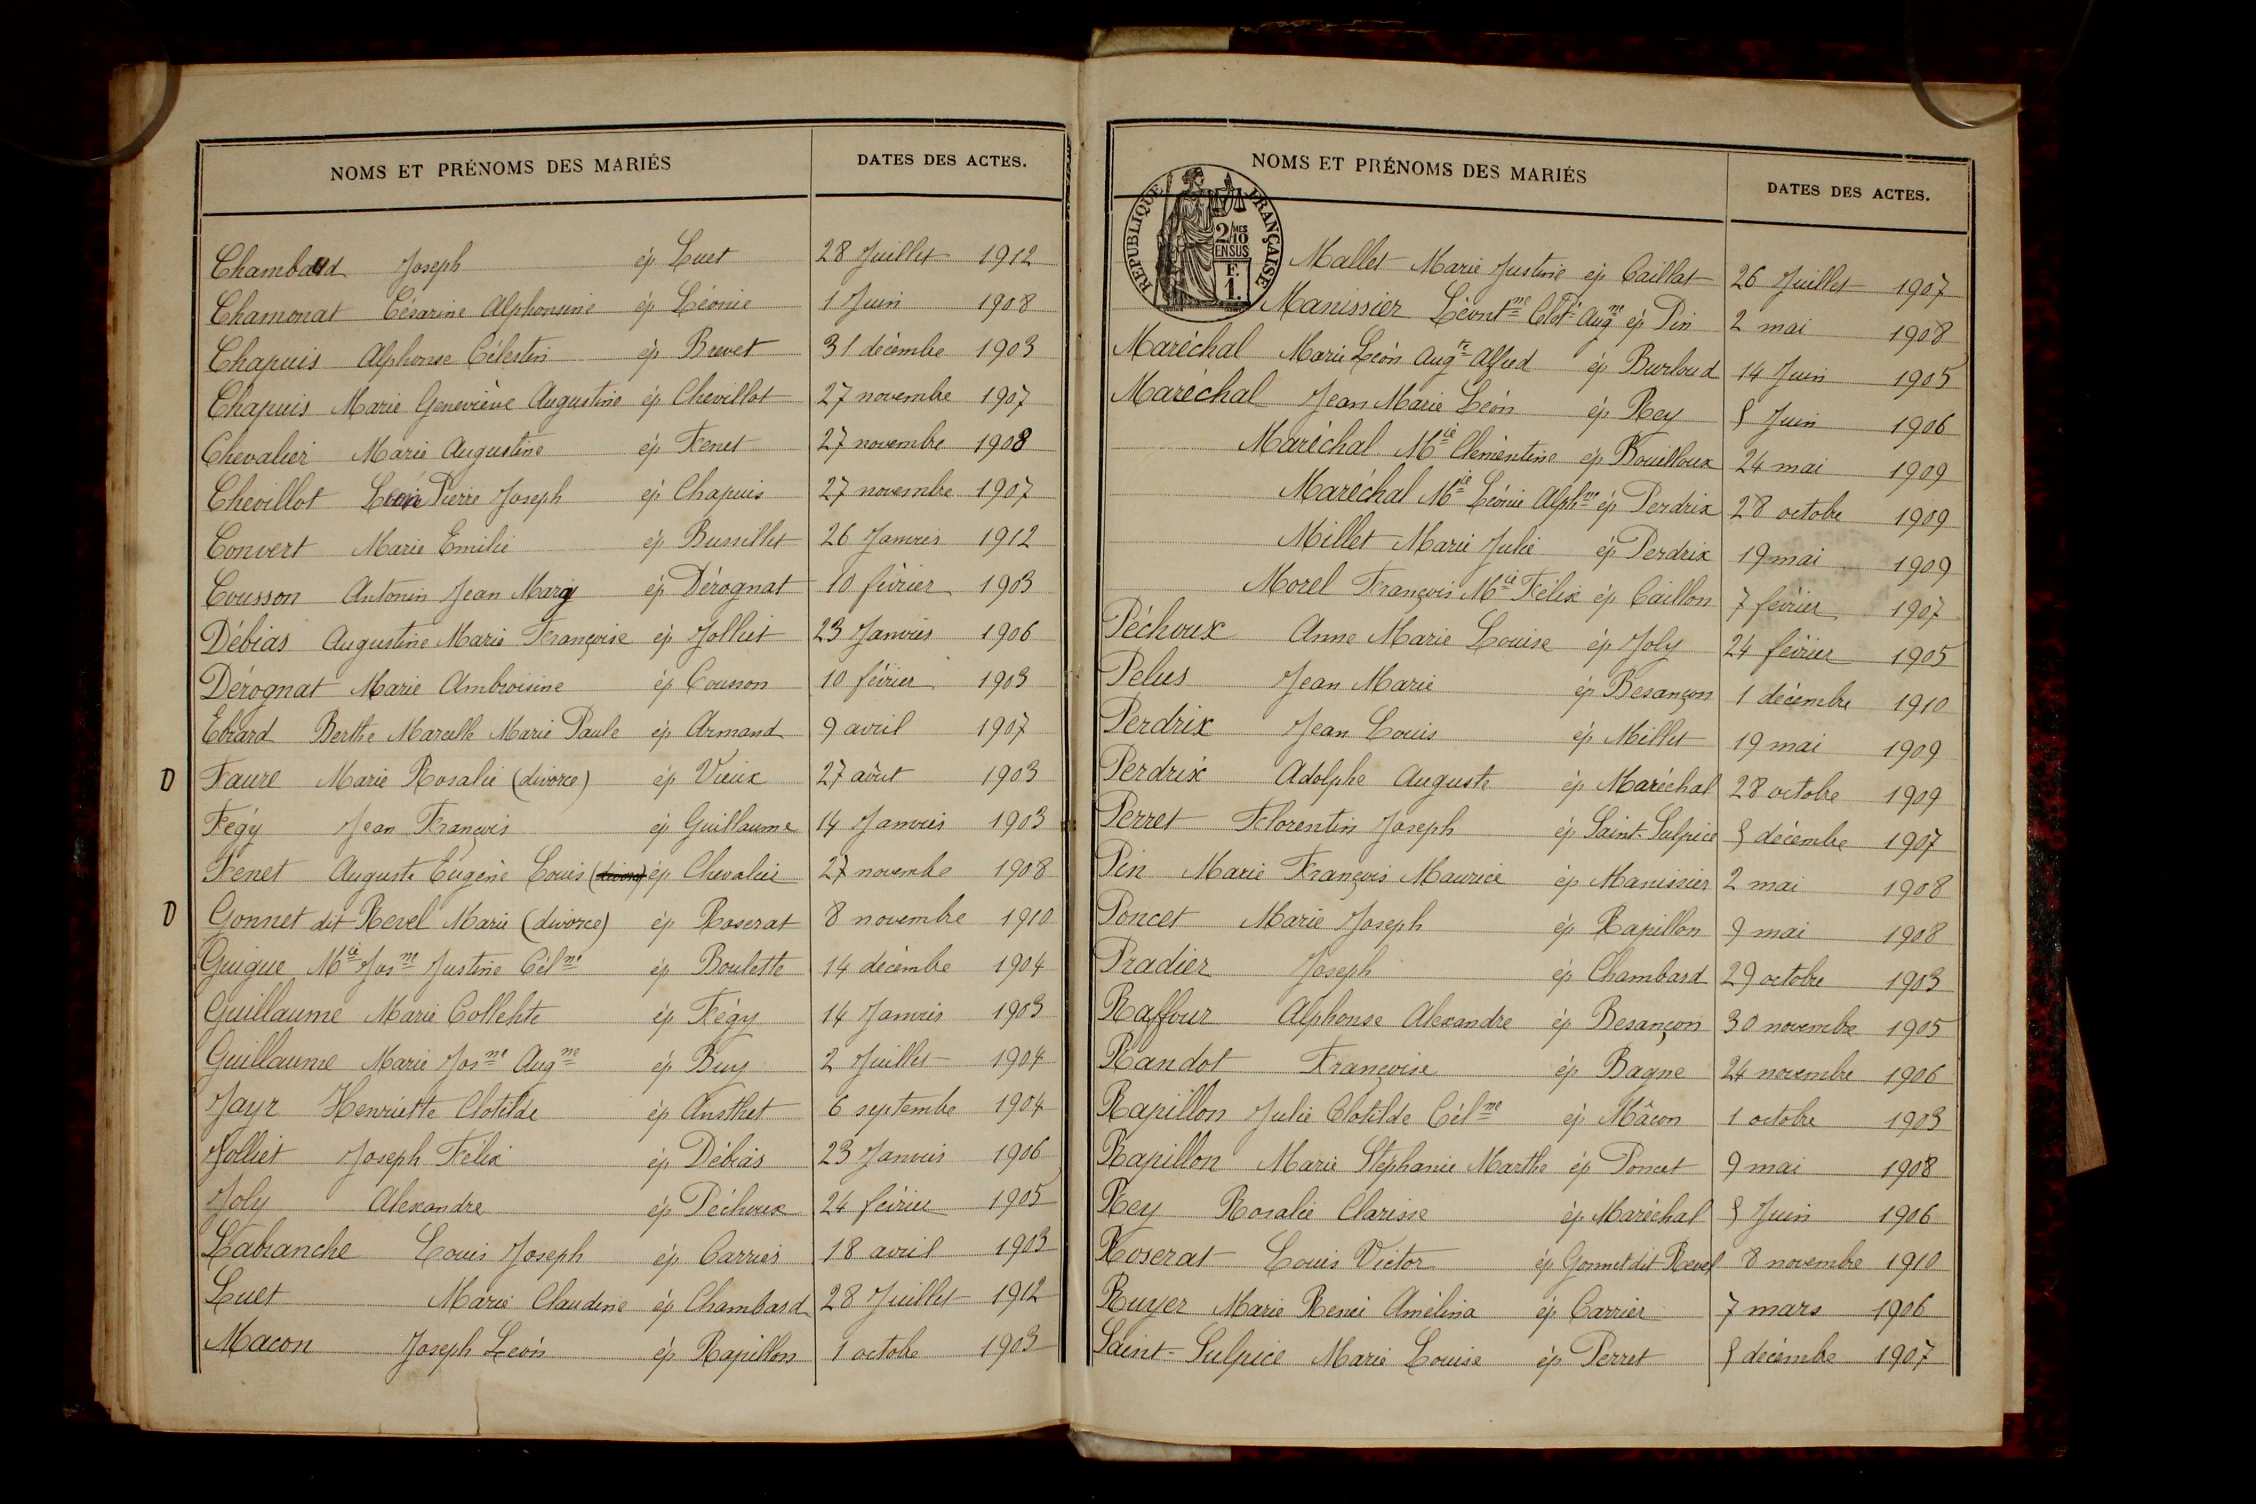 NOMS ET PRÉNOMS DES MARIÉS DATES DES ACTES.
Chambard Joseph ép Luet 28 Juillet 1912
Chamonat Césarine Alphonsine ép Léonie 1 Juin 1908
Chapuis Alphonse Célestin ép Brevet 31 décembre 1903
Chapuis Marie Geneviève Augustine ép Chevillot 27 novembre 1907
Chevalier Marie Augustine ép Fenet 27 novembre 1908
Chevillot Pierre Joseph ép Chapuis 27 novembre 1907
Convert Marie Emilie ép Bussillet 26 Janvier 1912
Cousson Antonin Jean Mary ép Dérognat 10 février 1903
Débias Augustine Marie Françoise ép Jolliet 23 Janvier 1906
Dérognat Marie Ambroisine ép Cousson 10 février 1903
Ebrard Berthe Marcelle Marie Paule ép Armand 9 avril 1907
D Faure Marie Rosalie (divorce) ép Vieux 27 août 1903
Fégy Jean François ép Guillaume 14 Janvier 1903
Fenet Auguste Eugène Louis (divorce) ép Chevalier 27 novembre 1908
D Gonnet dit Revel Marie (divorce) ép Roserat 8 novembre 1910
Guigue Mie Josne Justine Célne ép Boulette 14 décembre 1904
Guillaume Marie Collette ép Fégy 14 Janvier 1903
Guillaume Marie Josne Augne ép Buy 2 Juillet 1904
Jayr Henriette Clotilde ép Ansthet 6 septembre 1904
Jolliet Joseph Félix ép Débias 23 Janvier 1906
Joly Alexandre ép Péchoux 24 février 1905
Labranche Louis Joseph ép Carrier 18 avril 1903
Luet Marie Claudine ép Chambard 28 Juillet 1912
Macon Joseph Léon ép Rapillon 1 octobre 1903
NOMS ET PRÉNOMS DES MARIÉS DATES DES ACTES.
RÉPUBLIQUE FRANÇAISE
2/10 MES
EN SUS
F.
1.
Mallet Marie Justine ép Caillat 26 Juillet 1907
Manissier Léontne Clot Augne ép Pin 2 mai 1908
Maréchal Marie Léon Augte Alfred ép Burloud 14 Juin 1905
Maréchal Jean Marie Léon ép Rey 5 Juin 1906
Maréchal Mie Clémentine ép Bouilloux 24 mai 1909
Maréchal Mie Léonie Alphne ép Perdrix 28 octobre 1909
Millet Marie Julie ép Perdrix 19 mai 1909
Morel François Mie Félix ép Caillon 7 février 1907
Péchoux Anne Marie Louise ép Joly 24 février 1905
Pelus Jean Marie ép Besançon 1 décembre 1910
Perdrix Jean Louis ép Millet 19 mai 1909
Perdrix Adolphe Auguste ép Maréchal 28 octobre 1909
Perret Florentin Joseph ép Saint-Sulpice 5 décembre 1907
Pin Marie François Maurice ép Manissier 2 mai 1908
Poncet Marie Joseph ép Rapillon 9 mai 1908
Pradier Joseph ép Chambard 29 octobre 1903
Raffour Alphonse Alexandre ép Besançon 30 novembre 1905
Randot Françoise ép Bagne 24 novembre 1906
Rapillon Julie Clotilde Célne ép Mâcon 1 octobre 1903
Rapillon Marie Stéphanie Marthe ép Poncet 9 mai 1908
Rey Rosalie Clarisse ép Maréchal 5 Juin 1906
Roserat Louis Victor ép Gonnet dit Revel 8 novembre 1910
Ruyer Marie Renée Amélina ép Carrier 7 mars 1906
Saint-Sulpice Marie Louise ép Perret 5 décembre 1907